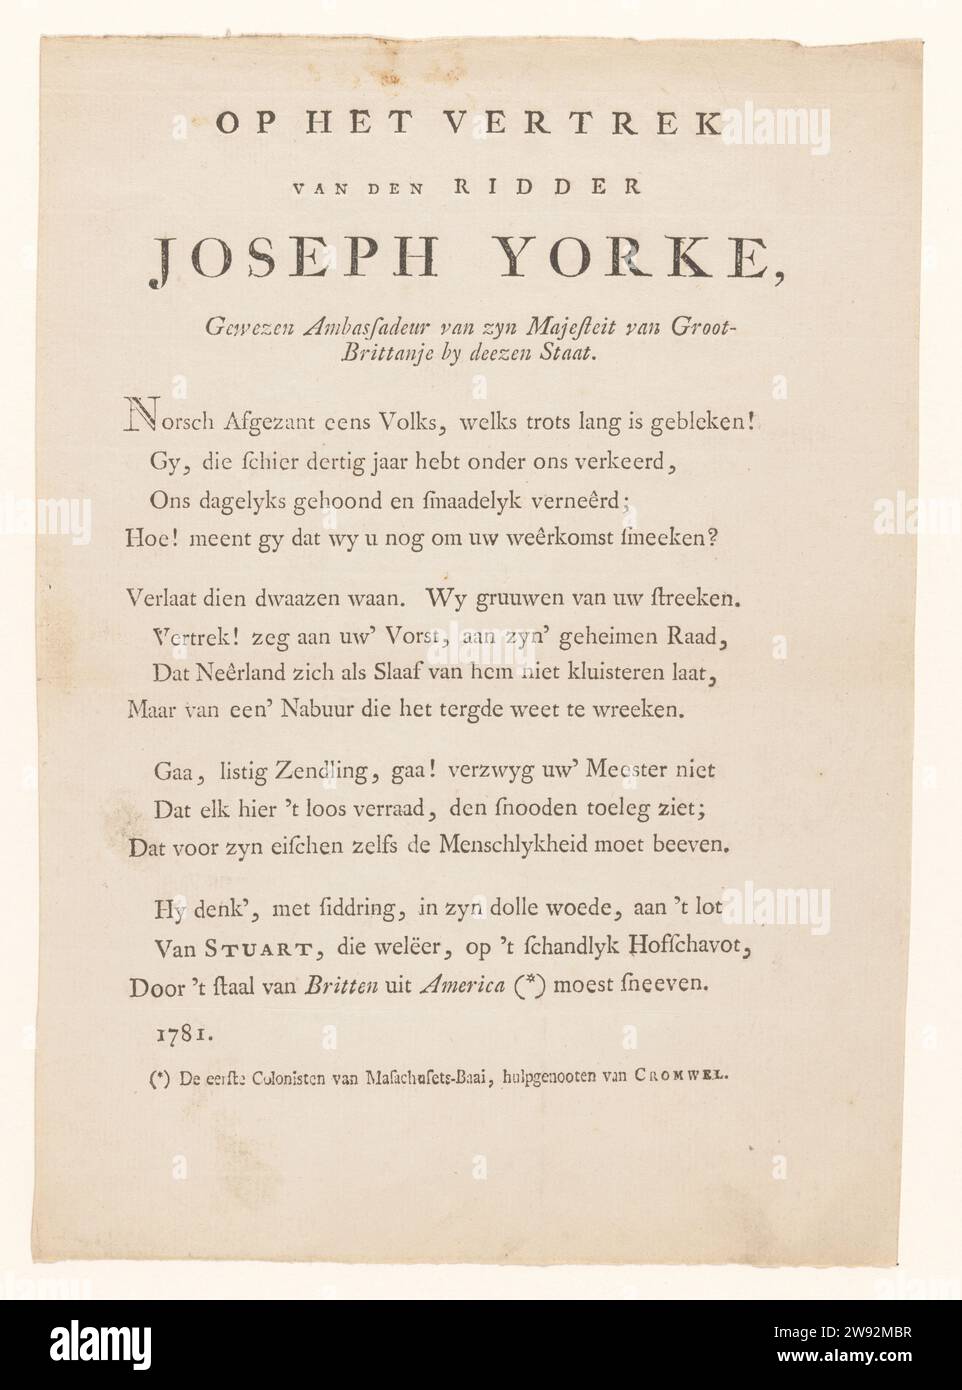 OP HET VERTREK
VAN DEN RIDDER
JOSEPH YORKE,
Gewezen Ambasſadeur van zyn Majeſteit van Groot-
Brittanje by deezen Staat.
Norsch Afgezant eens Volks, welks trots lang is gebleken!
Gy, die ſchier dertig jaar hebt onder ons verkeerd,
Ons dagelyks gehoond en ſmaadelyk verneêrd;
Hoe! meent gy dat wy u nog om uw weêrkomst ſmeeken?
Verlaat dien dwaazen waan. Wy gruuwen van uw ſtreeken.
Vertrek! zeg aan uw’ Vorst, aan zyn’ geheimen Raad,
Dat Neêrland zich als Slaaf van hem niet kluisteren laat,
Maar van een’ Nabuur die het tergde weet te wreeken.
Gaa, listig Zendling, gaa! verzwyg uw’ Meester niet
Dat elk hier ’t loos verraad, den ſnooden toeleg ziet;
Dat voor zyn eiſchen zelfs de Menschlykheid moet beeven.
Hy denk’, met ſiddring, in zyn dolle woede, aan ’t lot
Van STUART, die welëer, op ’t ſchandlyk Hofſchavot,
Door ’t ſtaal van Britten uit America (*) moest ſneeven.
1781.
(*) De eerſte Colonisten van Maſachuſets-Baai, hulpgenooten van CROMWEL.
alamy
Image ID: 2W92MBR
www.alamy.com